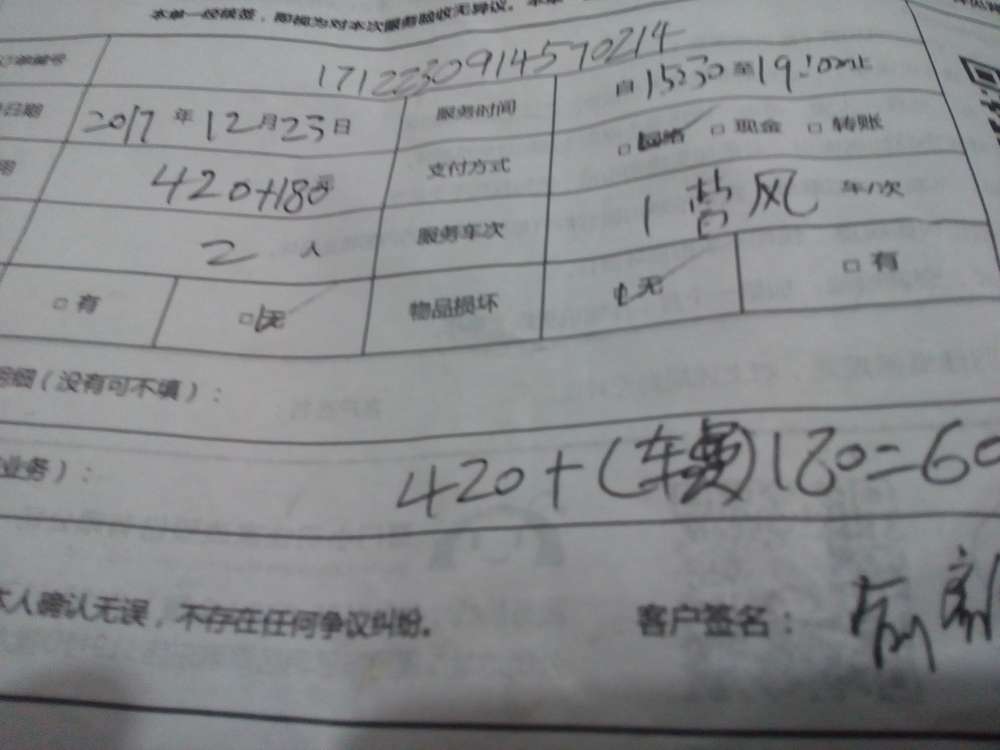 本单一经核签，即视为对本次服务验收无异议。本单
订单编号 1712230914570214
日期 2017年12月23日 服务时间 自15:30至19:20止
用 420+180元 支付方式 □网络 □现金 □转账
2人 服务车次 1 车/次
□有 □无 物品损坏 □无 □有
明细（没有可不填）：
业务）： 420+(车费)180=60
本人确认无误，不存在任何争议纠纷。 客户签名：